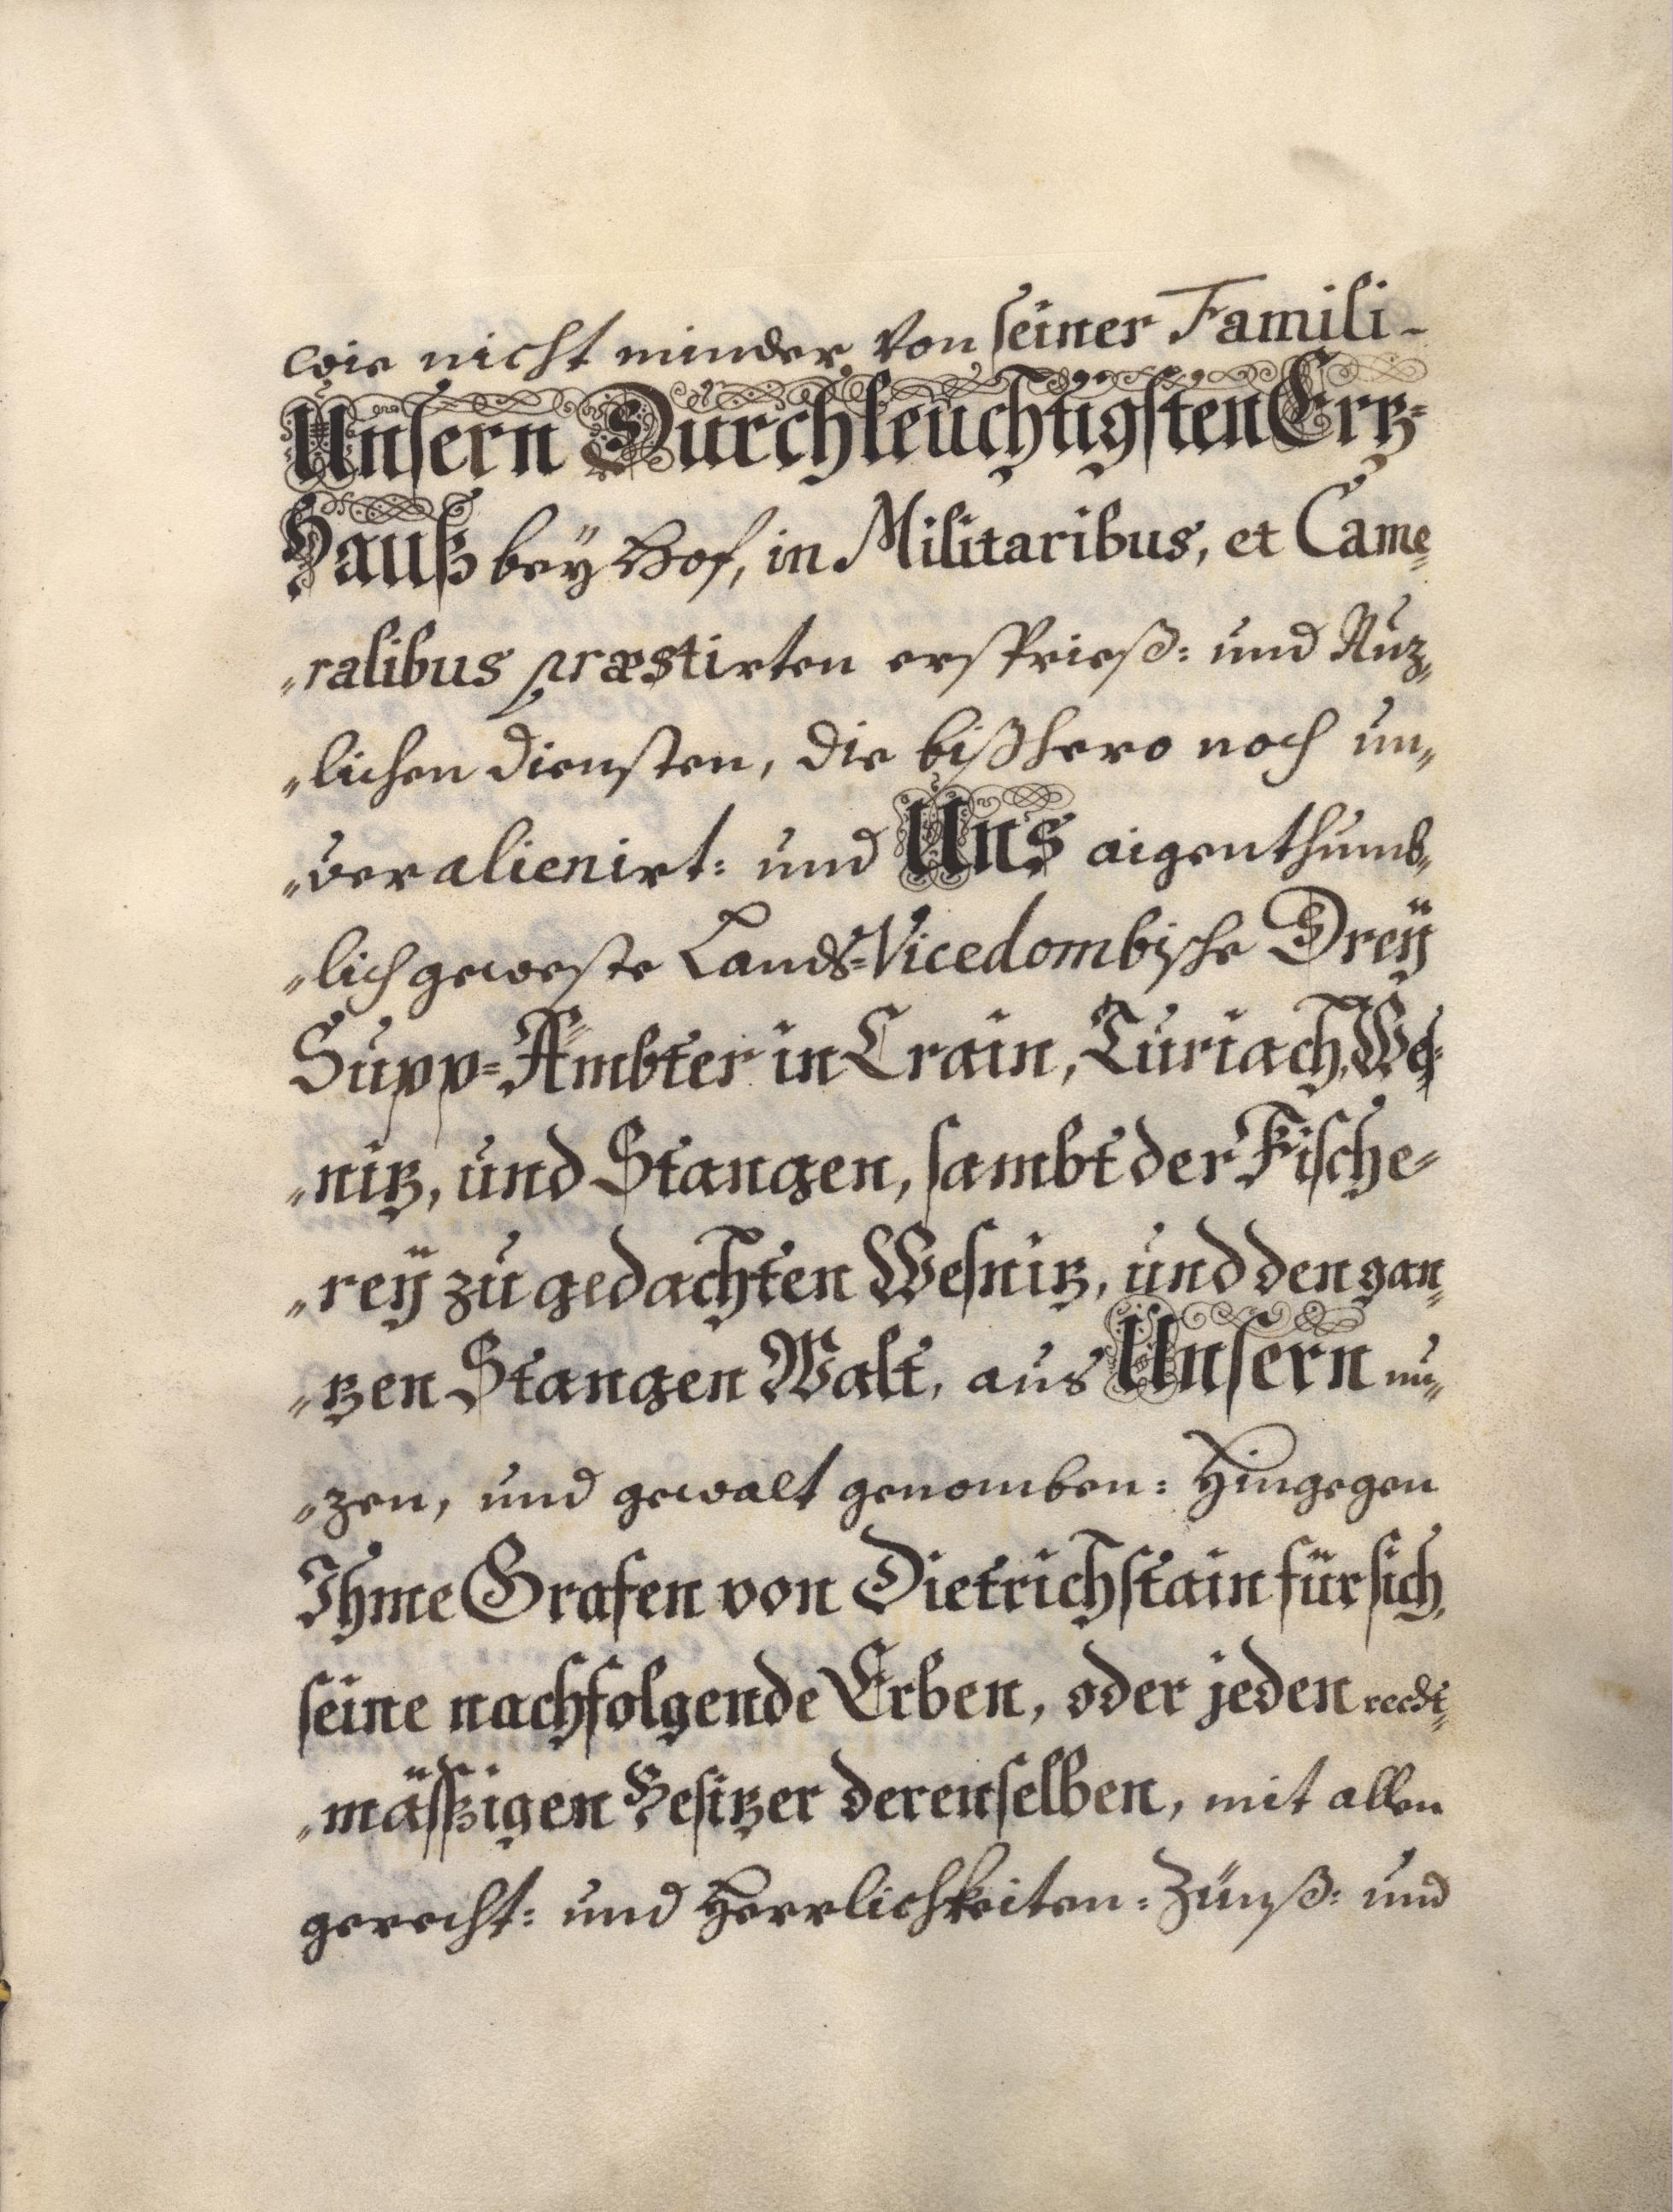 wie nicht minder von seiner Famili-
Unsern Durchleuchtigsten Ertz=
Hauß beÿ Hof, in Militaribus, et Came„
„ralibus præstirten ersprieß: und Nuz„
„lichen diensten, die bißhero noch un„
„veralienirt: und Uns aigenthumb„
„lich geweste Lands=Vicedombische Dreÿ
Supp=Ämbter in Crain, Turiach, Weß=
„nitz, und Stangen, sambt der Fische=
„reÿ zu gedachten Wesnitz, und den gan„
„tzen Stangen Walt, aus Unsern nu„
„zen, und gewalt genomben: Hingegen
Ihme Grafen von Dietrichstain für sich,
seine nachfolgende Erben, oder jeden recht„
„mässigen Besitzer derenselben, mit allen
gerecht: und Herrlichkeiten: Zünß: und